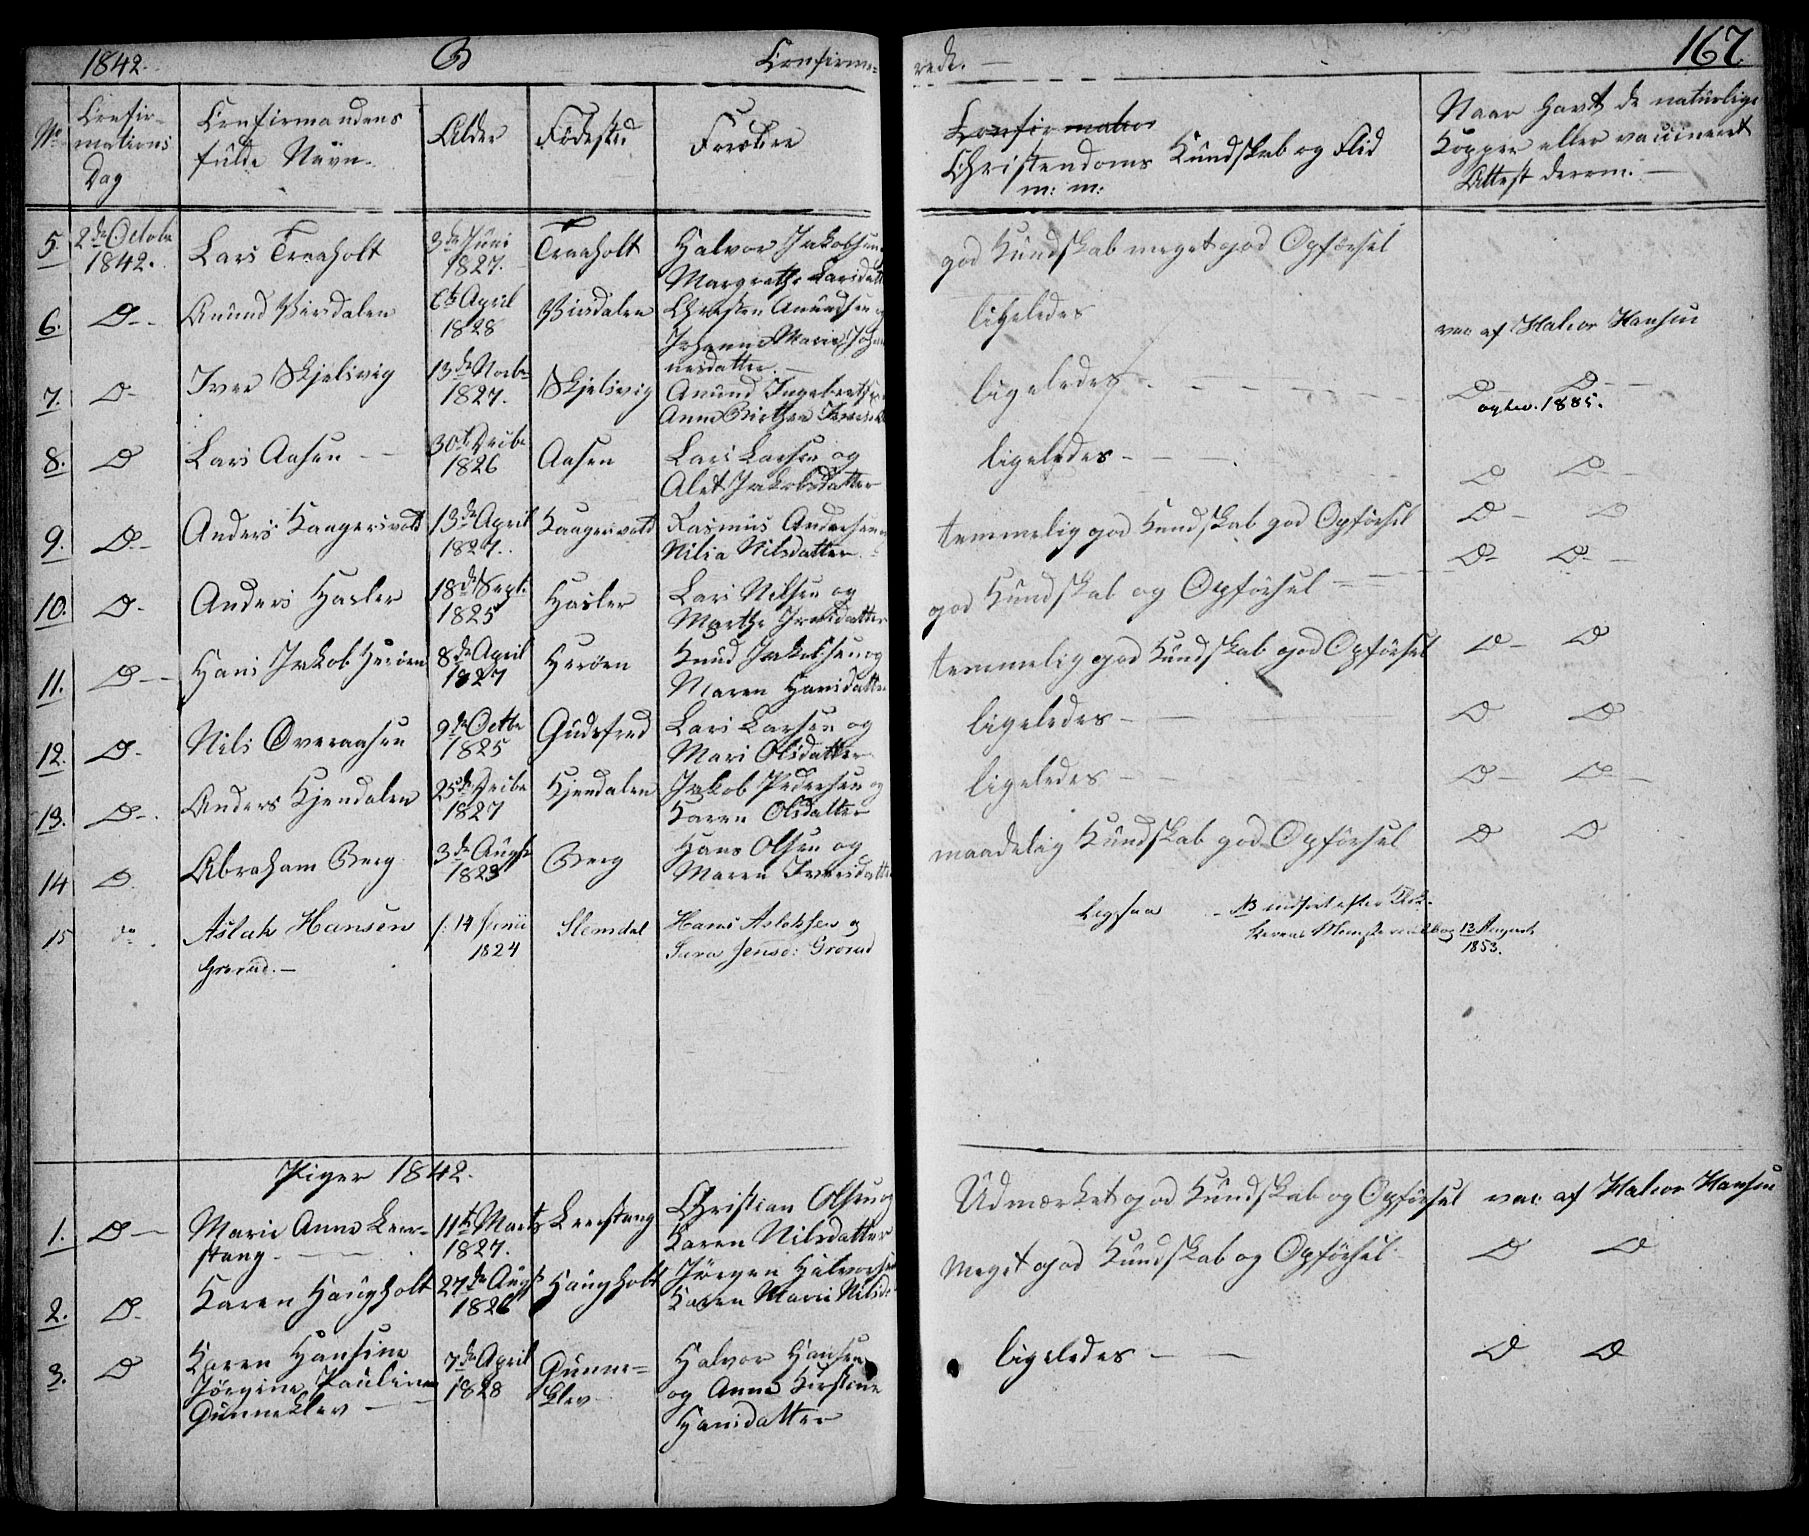 1842. B Confirme-
rede. — 167
No
Confir-
mations
Dag
Confirmandens
fulde Navn.
Alder
Fødested
Forældre
Confirmation
Christendoms Kundskab og Flid
m: m:
Naar havt de naturlige
Kopper eller vaccineret
Attest derom. —
5. 2de Octobr 1842. Lars Traaholt 3de Juni 1827. Traaholt Halvor Jakobsen
Margrethe Larsdatter
god Kundskab meget god Opførsel
6. D-- Anund Virsdalen 6te April 1828 Virsdalen Christen Anundsen og
Johanne Marie Johan-
nesdatter. —
ligeledes
vac af Halvor Hansen
7. D- Iver Skjelsvig 13de Novbr 1827. Skjelsvig Anund Ingebretsen
Anne Birthe Iversd
ligeledes
D- D-
og rev. 1885.
8. D Lars Aasen — 30te Decbr 1826 Aasen Lars Larsen og
Alet Jakobsdatter
ligeledes — —
D D-
9. D.- Anders Kaagersvold 13de April 1827. Kaagersvold Rasmus Andersen
Nilia Nilsdatter
temmelig god Kundskab god Opførsel
D- D
10. D- Anders Hasler 18de Sept. 1825 Hasler Lars Nilsen og
Marthe Iversdatter
god Kundskab og Opførsel
D- D-
11. D-- Hans Jakob Herøen 8de April 1827 Herøen Knud Jakobsen og
Maren Hansdatter
temmelig god Kundskab god Opførsel
D- D
12. D- Nils Overaasen 9de Octbr 1825 Gudesrud Lars Larsen og
Mari Olsdatter
ligeledes — —
D D
13. D-. Anders Kjendalen 25de Decbr 1827 Kjendalen Jakob Pedersen og
Karen Olsdatter
ligeledes — —
D- D-
14 D. Abraham Berg 3de Augst 1823 Berg Hans Olsen og
Maren Iversdatter
maadelig Kundskab god Opførsel
D D
15 do Aslak Hansen f: 14 Junii Slemdal Hans Aslaksen og
Grorud. — 1824 Jensd: Grorud
Ligesaa - NB indført efter
13 August
1853.
Piger 1842.
1. D- Marie Anne Leer-
stang — 11te Marts 1827. Leerstang Christian Olsen og
Karen Nilsdatter
Udmærket god Kundskab og Opførsel vac. af Halvor Hansen
2. D- Karen Haugholt 27de Augst 1826 Haugholt Jørgen Halvorsen
Karen Marie Nilsd
Meget god Kundskab og Opførsel
D D
3. D Karen Hansine
Jørgine Pauline
Gunneklev — 7de April 1828 Gunne-
klev Halvor Hansen
og Anne Kirstine
Hansdatter
ligeledes — —
D D